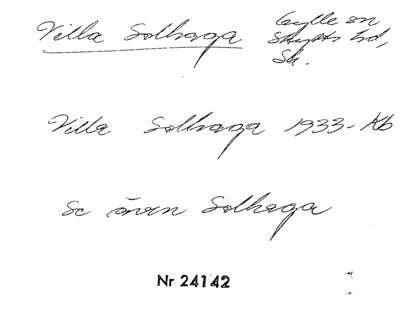 Villa Solhaga Gylle sn
Skytts hd,
Sk.
Villa Solhaga 1933- Kb
Se även Solhaga
Nr 24142